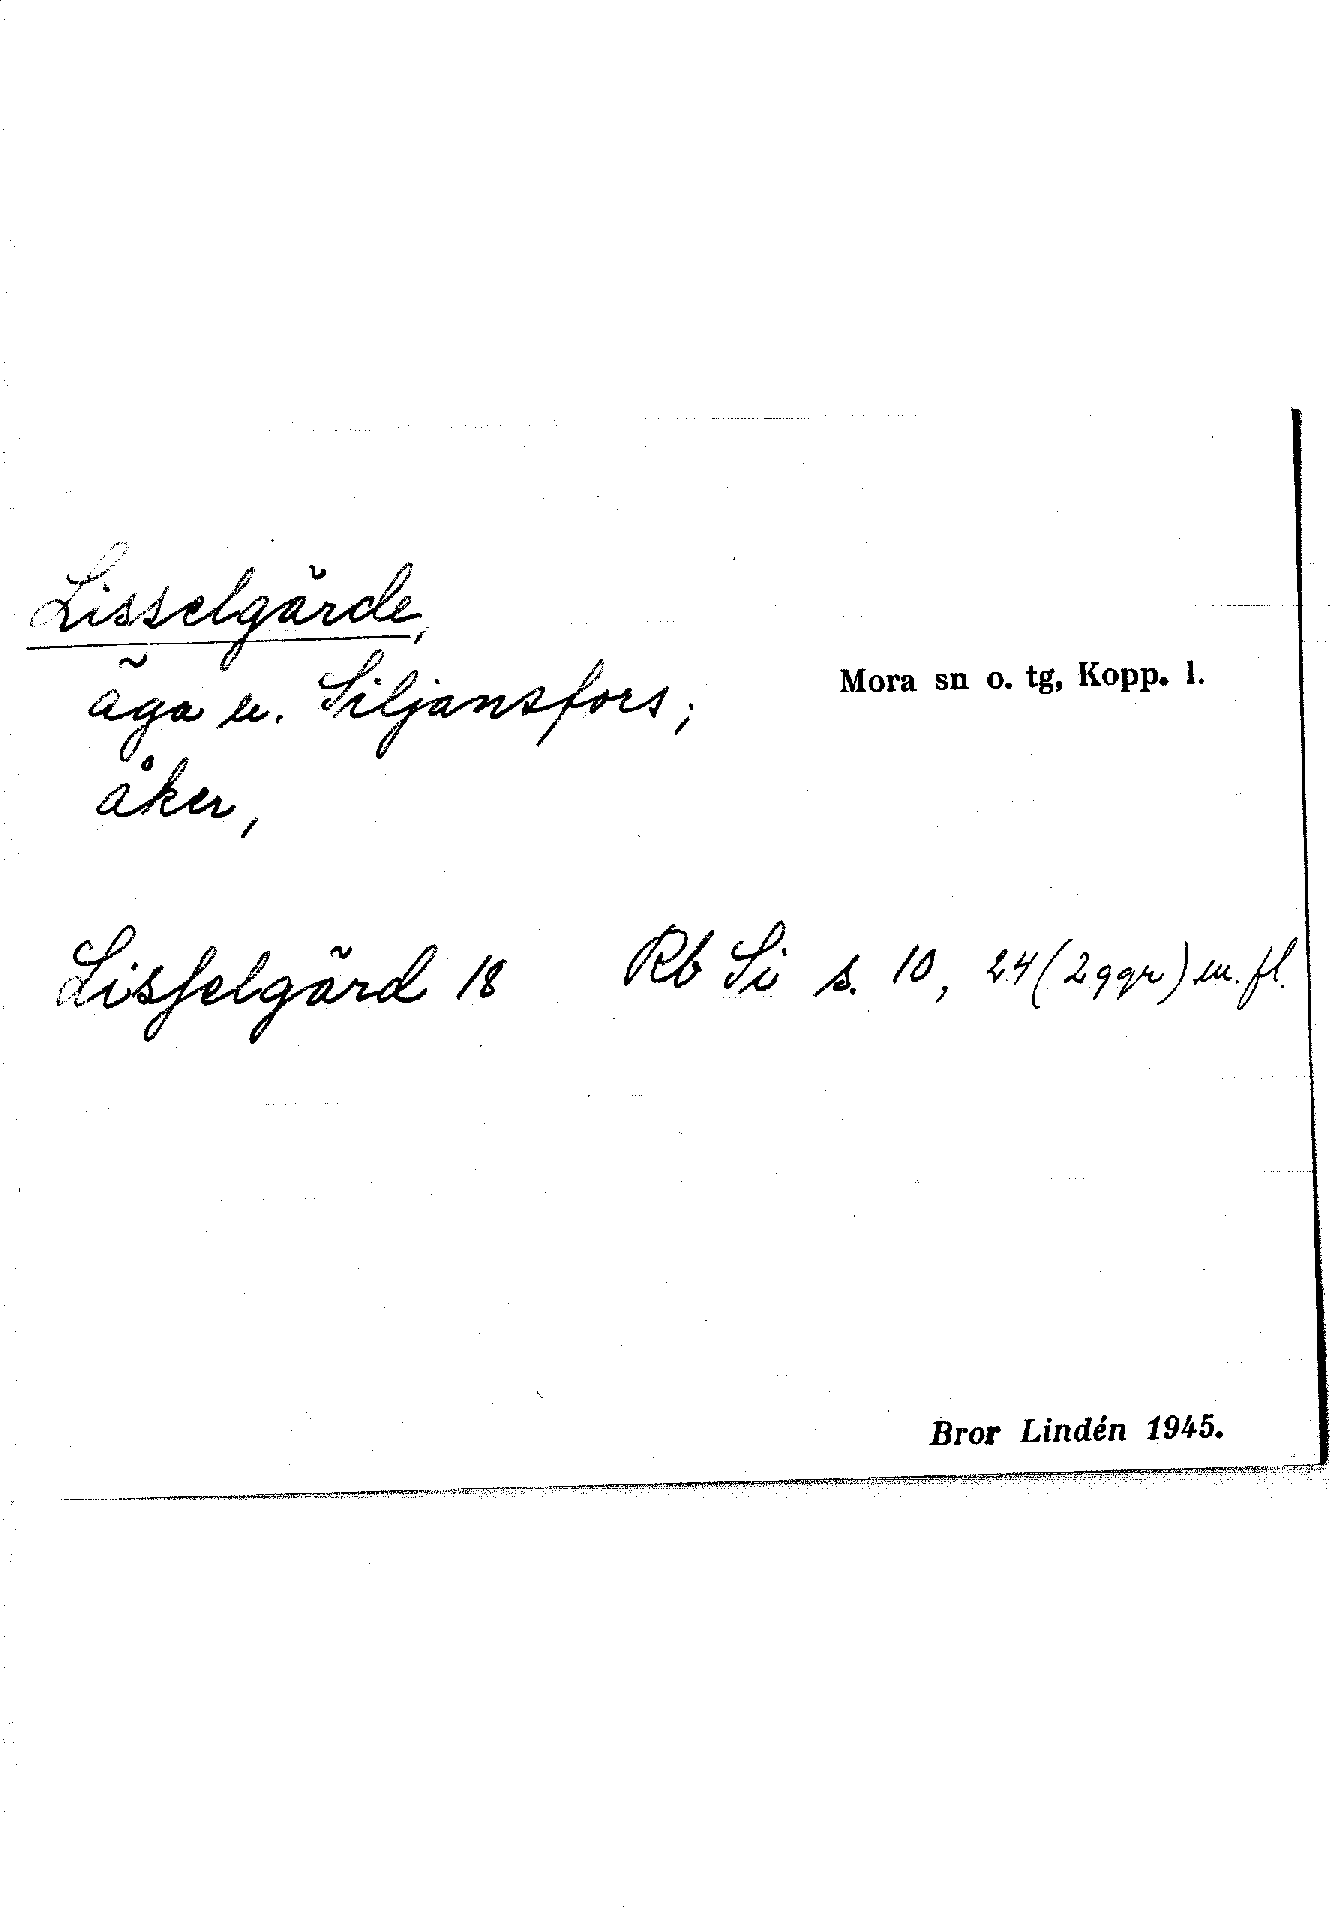 Lisselgärde,
äga u. Siljansfors;
åker,
Mora sn o. tg, Kopp. l.
Lisſelgärd 18 Rb Si s. 10, 24 (2 ggr) m. fl.
Bror Lindén 1945.